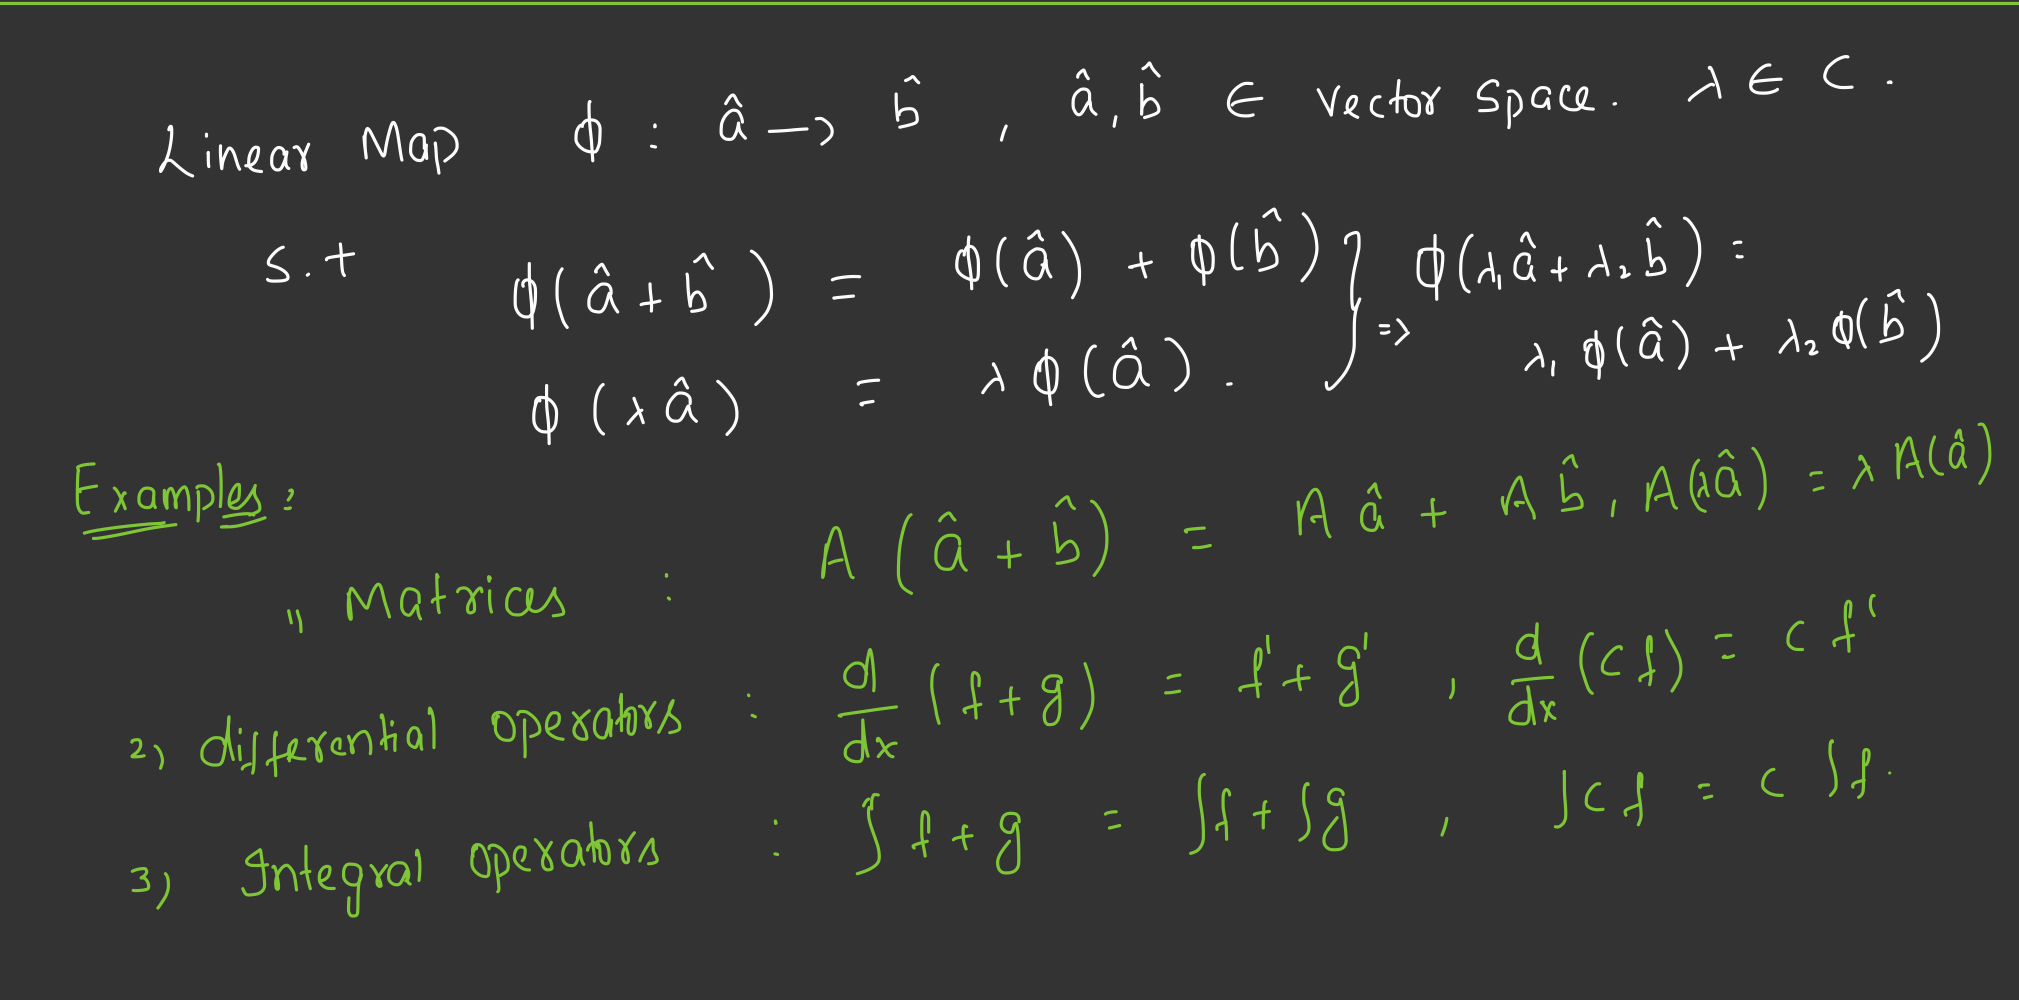 Linear Map ϕ : â → b̂ , â, b̂ ∈ Vector Space. λ ∈ C.
s.t ϕ(â + b̂) = ϕ(â) + ϕ(b̂) } => ϕ(λ₁â + λ₂b̂) =
ϕ(λâ) = λϕ(â). λ₁ϕ(â) + λ₂ϕ(b̂)
Examples:
1) Matrices : A(â + b̂) = Aâ + Ab̂, A(λâ) = λA(â)
2) differential operators : d/dx (f+g) = f' + g' , d/dx (cf) = cf'
3) Integral operators : ∫ f+g = ∫f + ∫g , ∫cf = c ∫f.